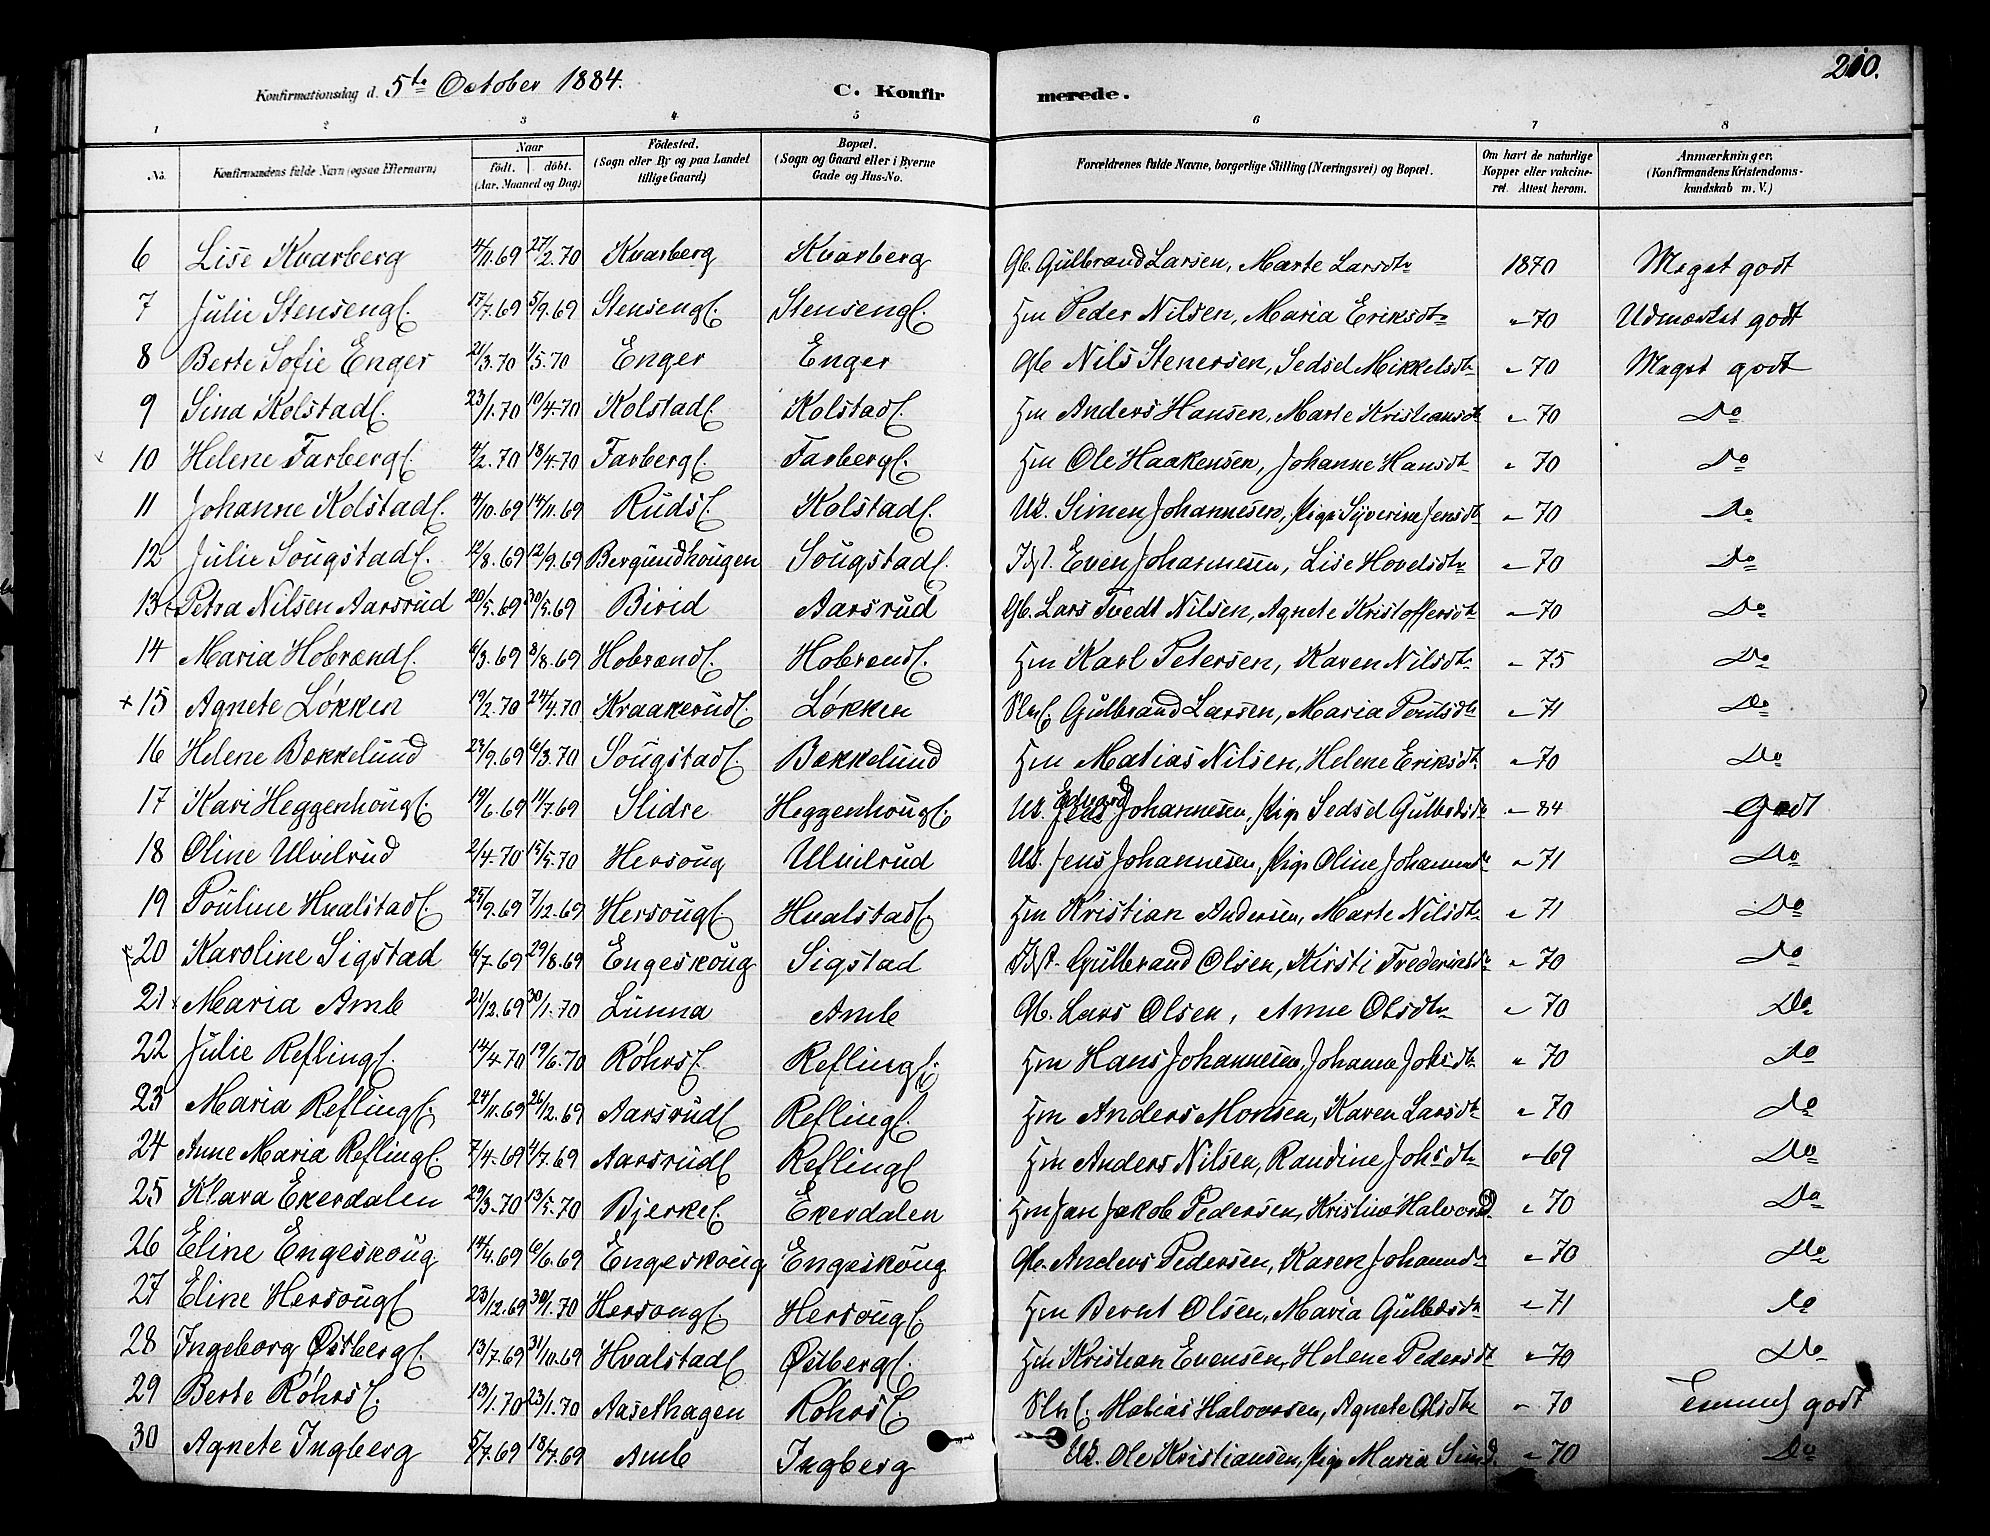 210.
Konfirmationsdag d. 5te October 1884. C. Konfirmerede.
1 2 3 4 5 6 7 8
No. Konfirmandens fulde Navn (ogsaa Efternavn) Naar födt. döbt. (Aar, Maaned og Dag) Födested. (Sogn eller By og paa Landet tillige Gaard) Bopæl. (Sogn og Gaard eller i Byerne Gade og Hus-No. Forældrenes fulde Navne, borgerlige Stilling (Næringsvei) og Bopæl. Om havt de naturlige Kopper eller vakcineret. Attest herom. Anmærkninger. (Konfirmandens Kristendomskundskab m. V.)
6 Lise Kvarberg 4/11.69 27/2.70 Kvarberg Kvarberg Gb. Gulbrand Larsen, Marte Larsdtr 1870 Meget godt
7 Julie Stenseng 17/7.69 5/9.69 Stenseng Stenseng Hm Peder Nilsen, Maria Eriksdtr " 70 Udmærket godt
8 Berte Sofie Enger 21/3.70 1/5.70 Enger Enger Gb Nils Stenersen, Sedsel Mikkelsdtr " 70 Meget godt
9 Sina Kolstad 23/1.70 10/4.70 Kolstad Kolstad Hm Anders Hansen, Marte Kristiansdtr " 70 Do
10 Helene Farberg 4/2.70 18/4.70 Farberg Farberg Hm Ole Haakensen, Johanne Hansdtr " 70 Do
11 Johanne Kolstad 4/10.69 14/11.69 Ruds Kolstad Uk. Simen Johannesen, Pige Syverine Jensdtr " 70 Do
12 Julie Sougstad 12/8.69 12/9.69 Bergundhougen Sougstad Even Johannesen, Lise Hovelsdtr " 70 Do
13 Petra Nilsen Aarsrud 20/5.69 30/5.69 Birid Aarsrud Gb. Lars Tvedt Nilsen, Agnete Kristoffersdtr " 70 Do
14 Maria Hobrænd 6/3.69 8/8.69 Hobrænd Hobrænd Hm Karl Petersen, Karen Nilsdtr " 75 Do
+ 15 Agnete Løkken 19/2.70 24/4.70 Kraakerud Løkken Gulbrand Larsen, Maria Poulsdtr " 71 Do
16 Helene Bækkelund 23/9.69 6/3.70 Sougstad Bækkelund Hm Matias Nilsen, Helene Eriksdtr " 70 Do
17 Kari Heggenhoug 19/6.69 11/7.69 Slidre Heggenhoug Uk. Edvard Johannesen, Pige Sedsel Gulbrdsdtr " 84 Godt
18 Oline Ulvilrud 2/4.70 15/5.70 Hersoug Ulvilrud Uk. Jens Johannesen, Pige Oline Johannsdtr " 71 Do
19 Pouline Hvalstad 25/9.69 7/12.69 Hersoug Hvalstad Hm Kristian Andersen, Marte Nilsdtr " 71 Do
20 Karoline Sigstad 6/7.69 29/8.69 Engeskoug Sigstad Gulbrand Olsen, Kirsti Frederiksdtr " 70 Do
21 Maria Amb 21/12.69 30/1.70 Lunna Amb Gb. Lars Olsen, Anne Olsdtr " 70 Do
22 Julie Refling 14/4.70 19/6.70 Røhrs Refling Hm Hans Johannesen, Johanne Johsdtr " 70 Do
23 Maria Refling 24/11.69 26/12.69 Aarsrud Refling Hm Anders Monsen, Karen Larsdtr " 70 Do
24 Anne Maria Refling 7/4.69 4/7.69 Aarsrud Refling Hm Anders Nilsen, Randine Johsdtr " 69 Do
25 Klara Ekerdalen 29/3.70 13/5.70 Bjerke Ekerdalen Hm Jan Jakob Pedersen, Kristine Halvord. " 70 Do
26 Eline Engeskoug 14/4.69 6/6.69 Engeskoug Engeskoug Gb. Anders Pedersen, Karen Johannsdtr " 70 Do
27 Eline Hersoug 23/12.69 30/1.70 Hersoug Hersoug Hm Bernt Olsen, Maria Gulbrdsdtr " 71 Do
28 Ingeborg Østberg 13/7.69 31/10.69 Hvalstad Østberg Hm Kristian Evensen, Helene Pedersdtr " 70 Do
29 Berte Røhrs 13/1.70 23/1.70 Aasethagen Røhrs Matias Halvorsen, Agnete Olsdtr " 70 Temmel godt
30 Agnete Ingberg 5/7.69 18/7.69 Amb Ingberg Uk. Ole Kristiansen, Pige Maria Simd. " 70 Do